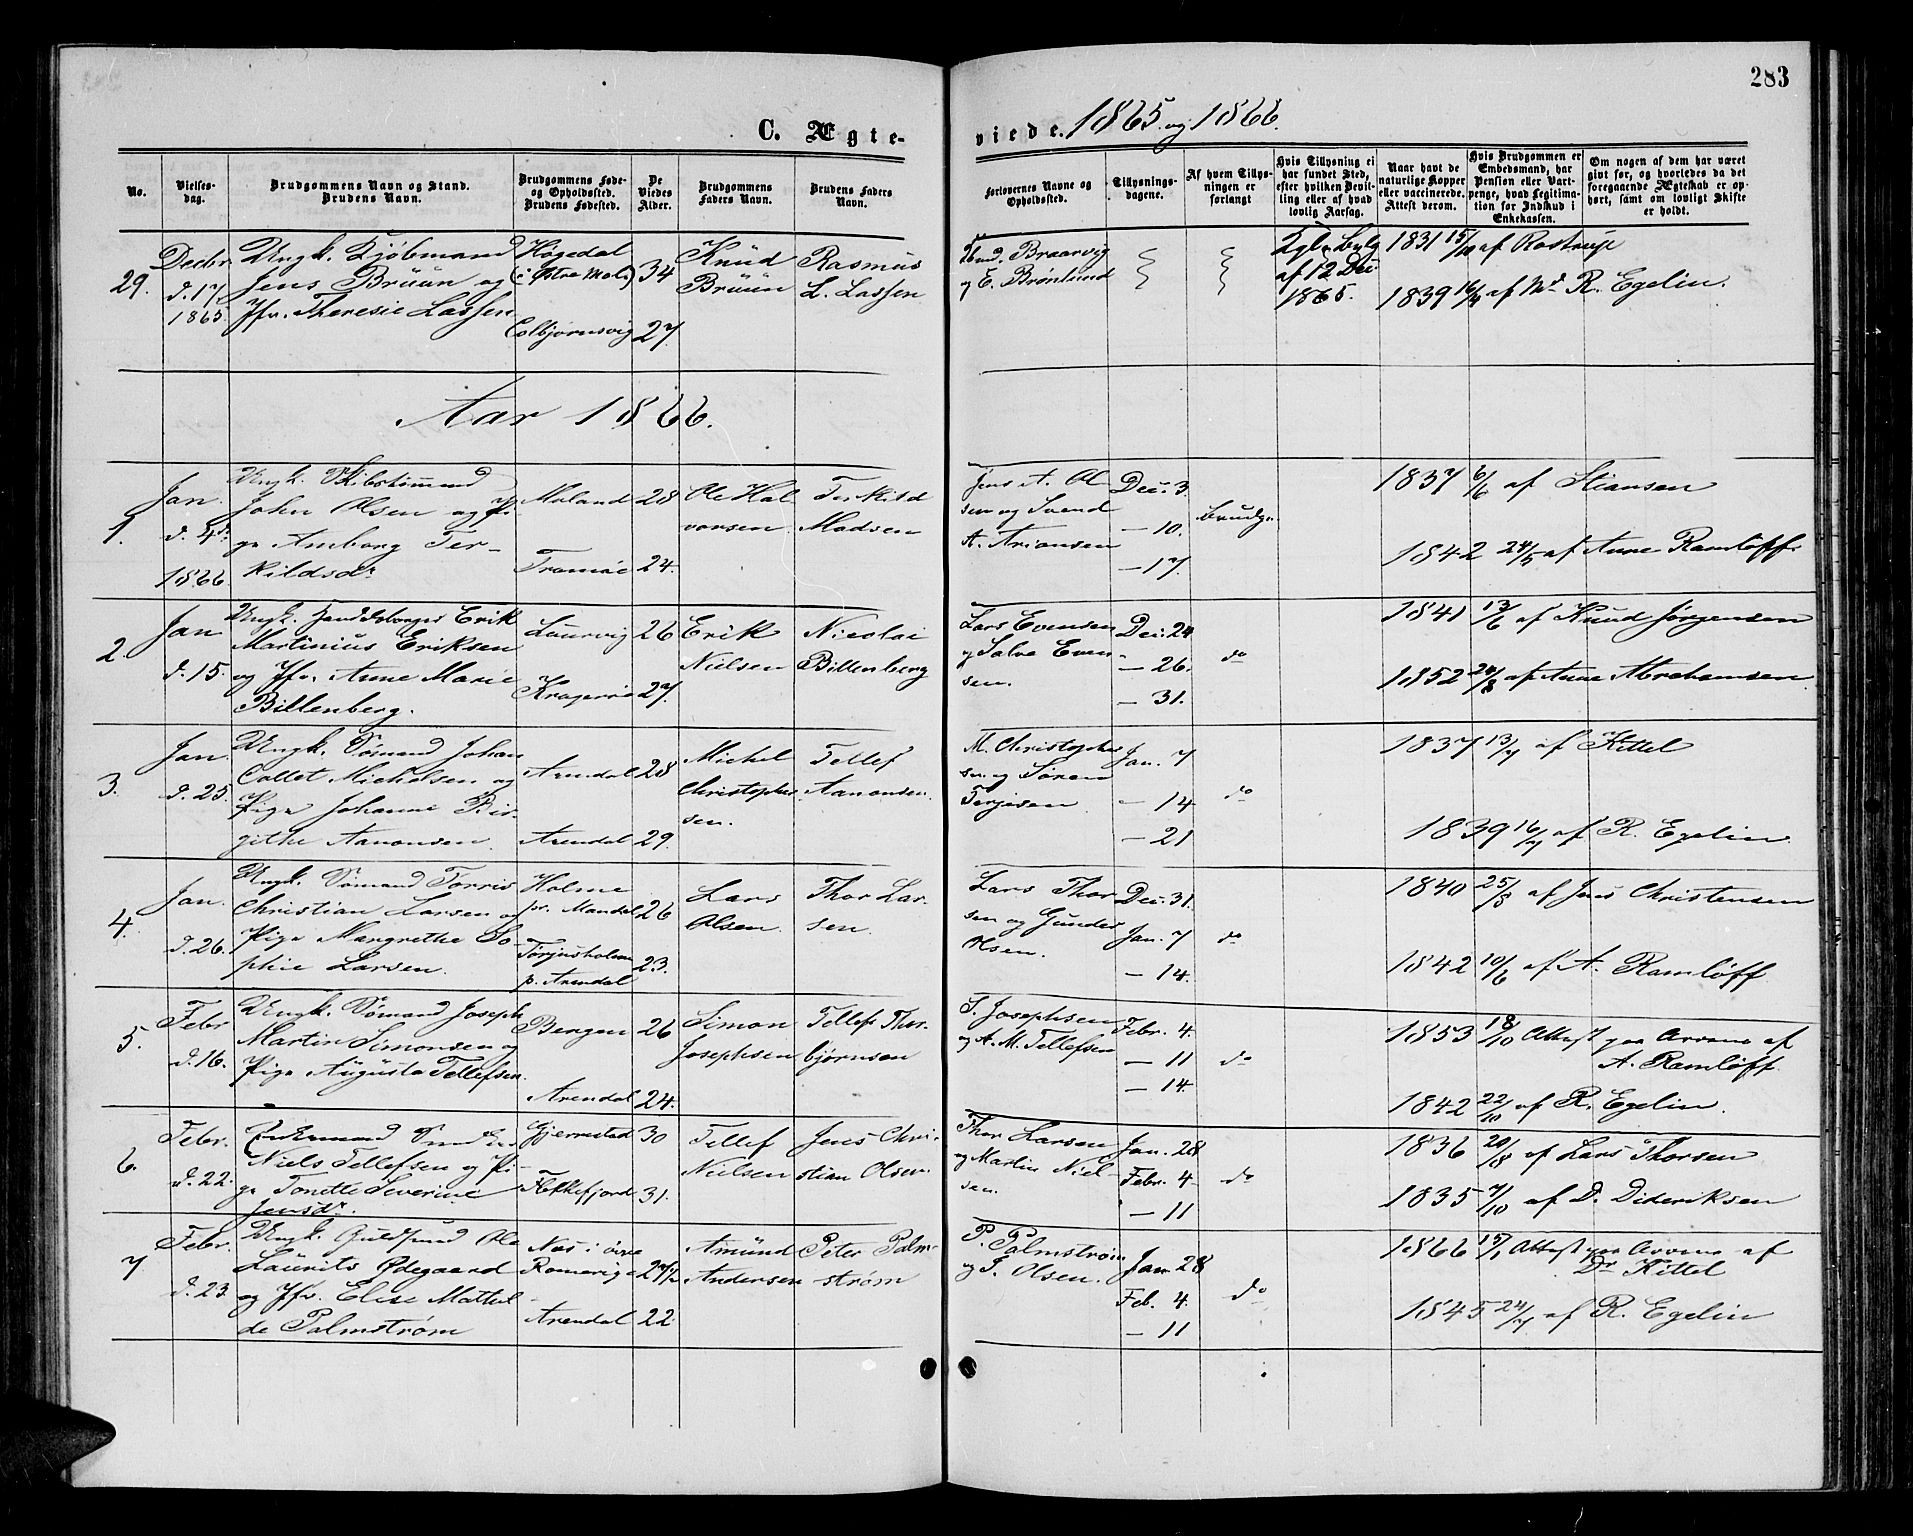 283
C. Ægte-
viede. 1865 og 1866.
No.
Vielses-
dag.
Brudgommens Navn og Stand.
Brudens Navn.
Brudgommens Føde-
og Opholdssted.
Brudens Fødested.
De
Viedes
Alder.
Brudgommens
Faders Navn.
Brudens Faders
Navn.
Forlovernes Navne og
Opholdssted.
Tillysnings-
dagene.
Af hvem Tillys-
ningen er
forlangt
Hvis Tillysning ei
har fundet Sted,
efter hvilken Bevil-
ling eller af hvad
lovlig Aarsag.
Naar havt de
naturlige Kopper
eller vaccinerede.
Attest derom.
Hvis Brudgommen er
Embedsmand, har
Pension eller Vart-
penge, hvad Legitima-
tion for Indskud i
Enkekassen.
Om nogen af dem har været
givt før, og hvorledes da det
foregaaende Ægteskab er op-
hørt, samt om lovligt Skifte
er holdt.
29.
Decbr
d. 17.
1865.
Ungk. Kjøbmand
Jens Brüün og
Jfr. Theresie Lassen
Høgedal
(i Østre Mol.)
Colbjørnsvig
34
27.
Knüd
Brüün
Rasmüs
L. Lassen
Braarvig
og E. Brønlund
Kgl. Bvlg
af 12 Dec
1865.
1831 15/10 af Rostrup
1839 16/7 af Md R. Egelin.
Aar 1866.
1.
Jan.
d. 4de
1866.
Ungk. Skibstømmd
John Olsen og Pi-
ge Amborg Ter-
kildsdr
Moland
Tromøe
28
24.
Ole Hal
vorsen
Terkild
Madsen
Jens A. Ol
sen og Svend
A. Ariansen
Dec. 3.
— 10.
— 17.
brudg.
1837 6/6 af Stiansen
1842 24/5 af Anne Ramløff
2.
Jan
d. 15.
Ungk. Erik
Martinius Eriksen
og Jfr. Anne Marie
Billenberg.
Laurvig
Kragerøe
26
27.
Erik
Nielsen
Nicolai
Billenberg
Lars Evensen
og Salve Even-
sen.
Dec. 24
— 26.
— 31.
do
1841 13/6 af Knud Jørgensen
1852 24/8 af Anne Abrahamsen
3.
Jan.
d. 25.
Ungk. Sømand Johan
Collet Michelsen og
Pige Johanne Bir-
githe Aanonsen.
Arendal
Arendal
28
29.
Michel
Christopher
sen.
Tellef
Aanonsen.
M. Christopher
sen og Søren
Terjesen
Jan. 7
— 14
— 21
do
1837 13/7 af Kittel
1839 16/7 af R. Egelin
4.
Jan.
d. 26.
Ungk. Sømand Torris
Christian Larsen og
Pige Margrethe So-
phie Larsen.
Holme
pr. Mandal
Torjusholmen
p. Arendal
26
23.
Lars
Olsen.
Thor Lar-
sen.
Lars Thor
sen og Gunder
Olsen.
Dec. 31.
Jan. 7
— 14.
do
1840 25/8 af Jens Christensen
1842 10/6 af A. Ramløff
5.
Febr
d. 16.
Ungk. Sømand Joseph
Martin Simonsen og
Pige Augüsta Tellefsen.
Bergen
Arendal
26
24.
Simon
Josephsen
Tellef Thor-
bjørnsen
S. Josephsen
og A. M. Tellefsen
Febr. 4.
— 11
— 14.
do
1853 18/10 Attest paa Arvene af
A. Ramløff.
1842 22/10 af R. Egelin.
6.
Febr.
d. 22.
Enkemand
Niels Tellefsen og Pi-
ge Tonette Severine
Jensdr.
Gjerrestad
Flekkefjord
30
31.
Tellef
Nielsen
Jens Chri-
stian Olsen.
Thor Larsen
og Martin Niel-
sen.
Jan. 28
Febr. 4
" — 11
do
1836 20/8 af Lars Thorsen
1835 7/10 af D. Dideriksen
7
Febr.
d. 23.
Ungk. Guldsmed Ole
Laürits Ødegaard
og Jfr. Elise Mathil-
de Palmstrøm
Næs i øvre
Romerige
Arendal
27 1/2
22
Amünd
Andersen
Peter Palm-
strøm
P. Palmstrøm
og T. Olsen.
Jan. 28
Feb. 4.
— 11
do
1866 15/1 Attest paa Arvene af
Dr Kittel
1845 24/7 af R. Egelin